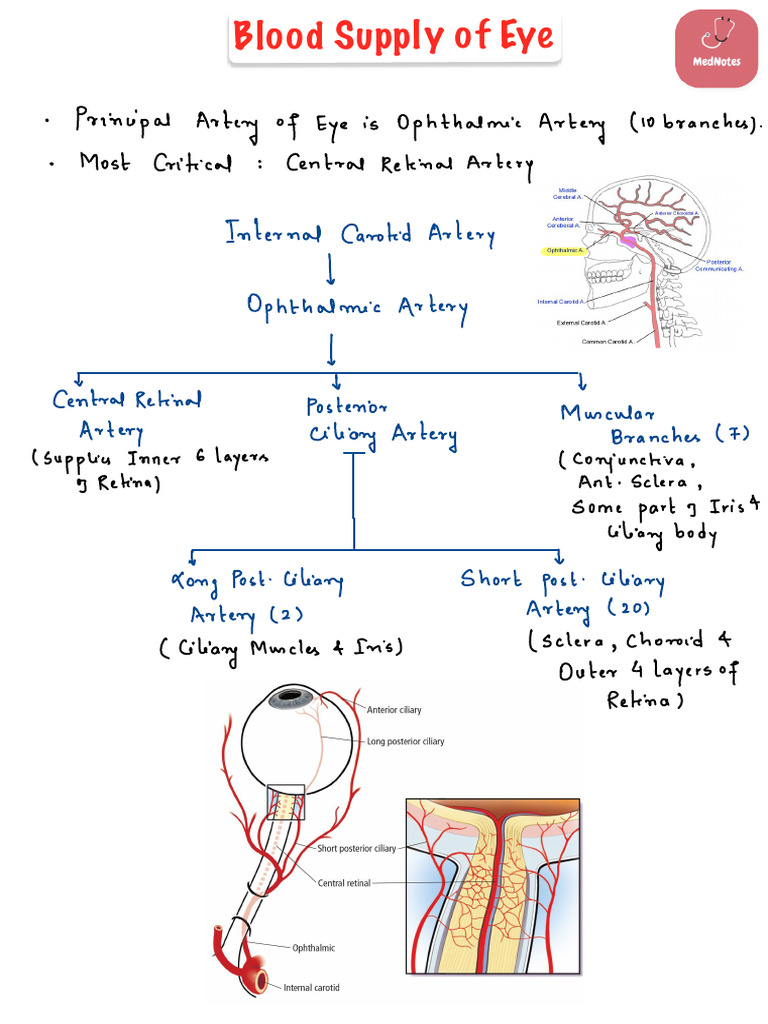 Blood Supply of Eye
MedNotes
• Principal Artery of Eye is Ophthalmic Artery (10 branches).
• Most Critical : Central Retinal Artery
Middle
Cerebral A.
Anterior
Cereboral A.
Anterior Choroidal A.
Ophthalmic A.
Posterior
Communicating A.
Internal Carotid A.
External Carotid A.
Common Carotid A.
Internal Carotid Artery
Ophthalmic Artery
Central Retinal
Artery
(Supplies Inner 6 layers
of Retina)
Posterior
Ciliary Artery
Muscular
Branches (7)
(Conjunctiva,
Ant. Sclera,
Some part of Iris &
Ciliary body
Long Post. Ciliary
Artery (2)
(Ciliary Muscles & Iris)
Short post. Ciliary
Artery (20)
(Sclera, Choroid &
Outer 4 layers of
Retina)
Anterior ciliary
Long posterior ciliary
Short posterior ciliary
Central retinal
Ophthalmic
Internal carotid